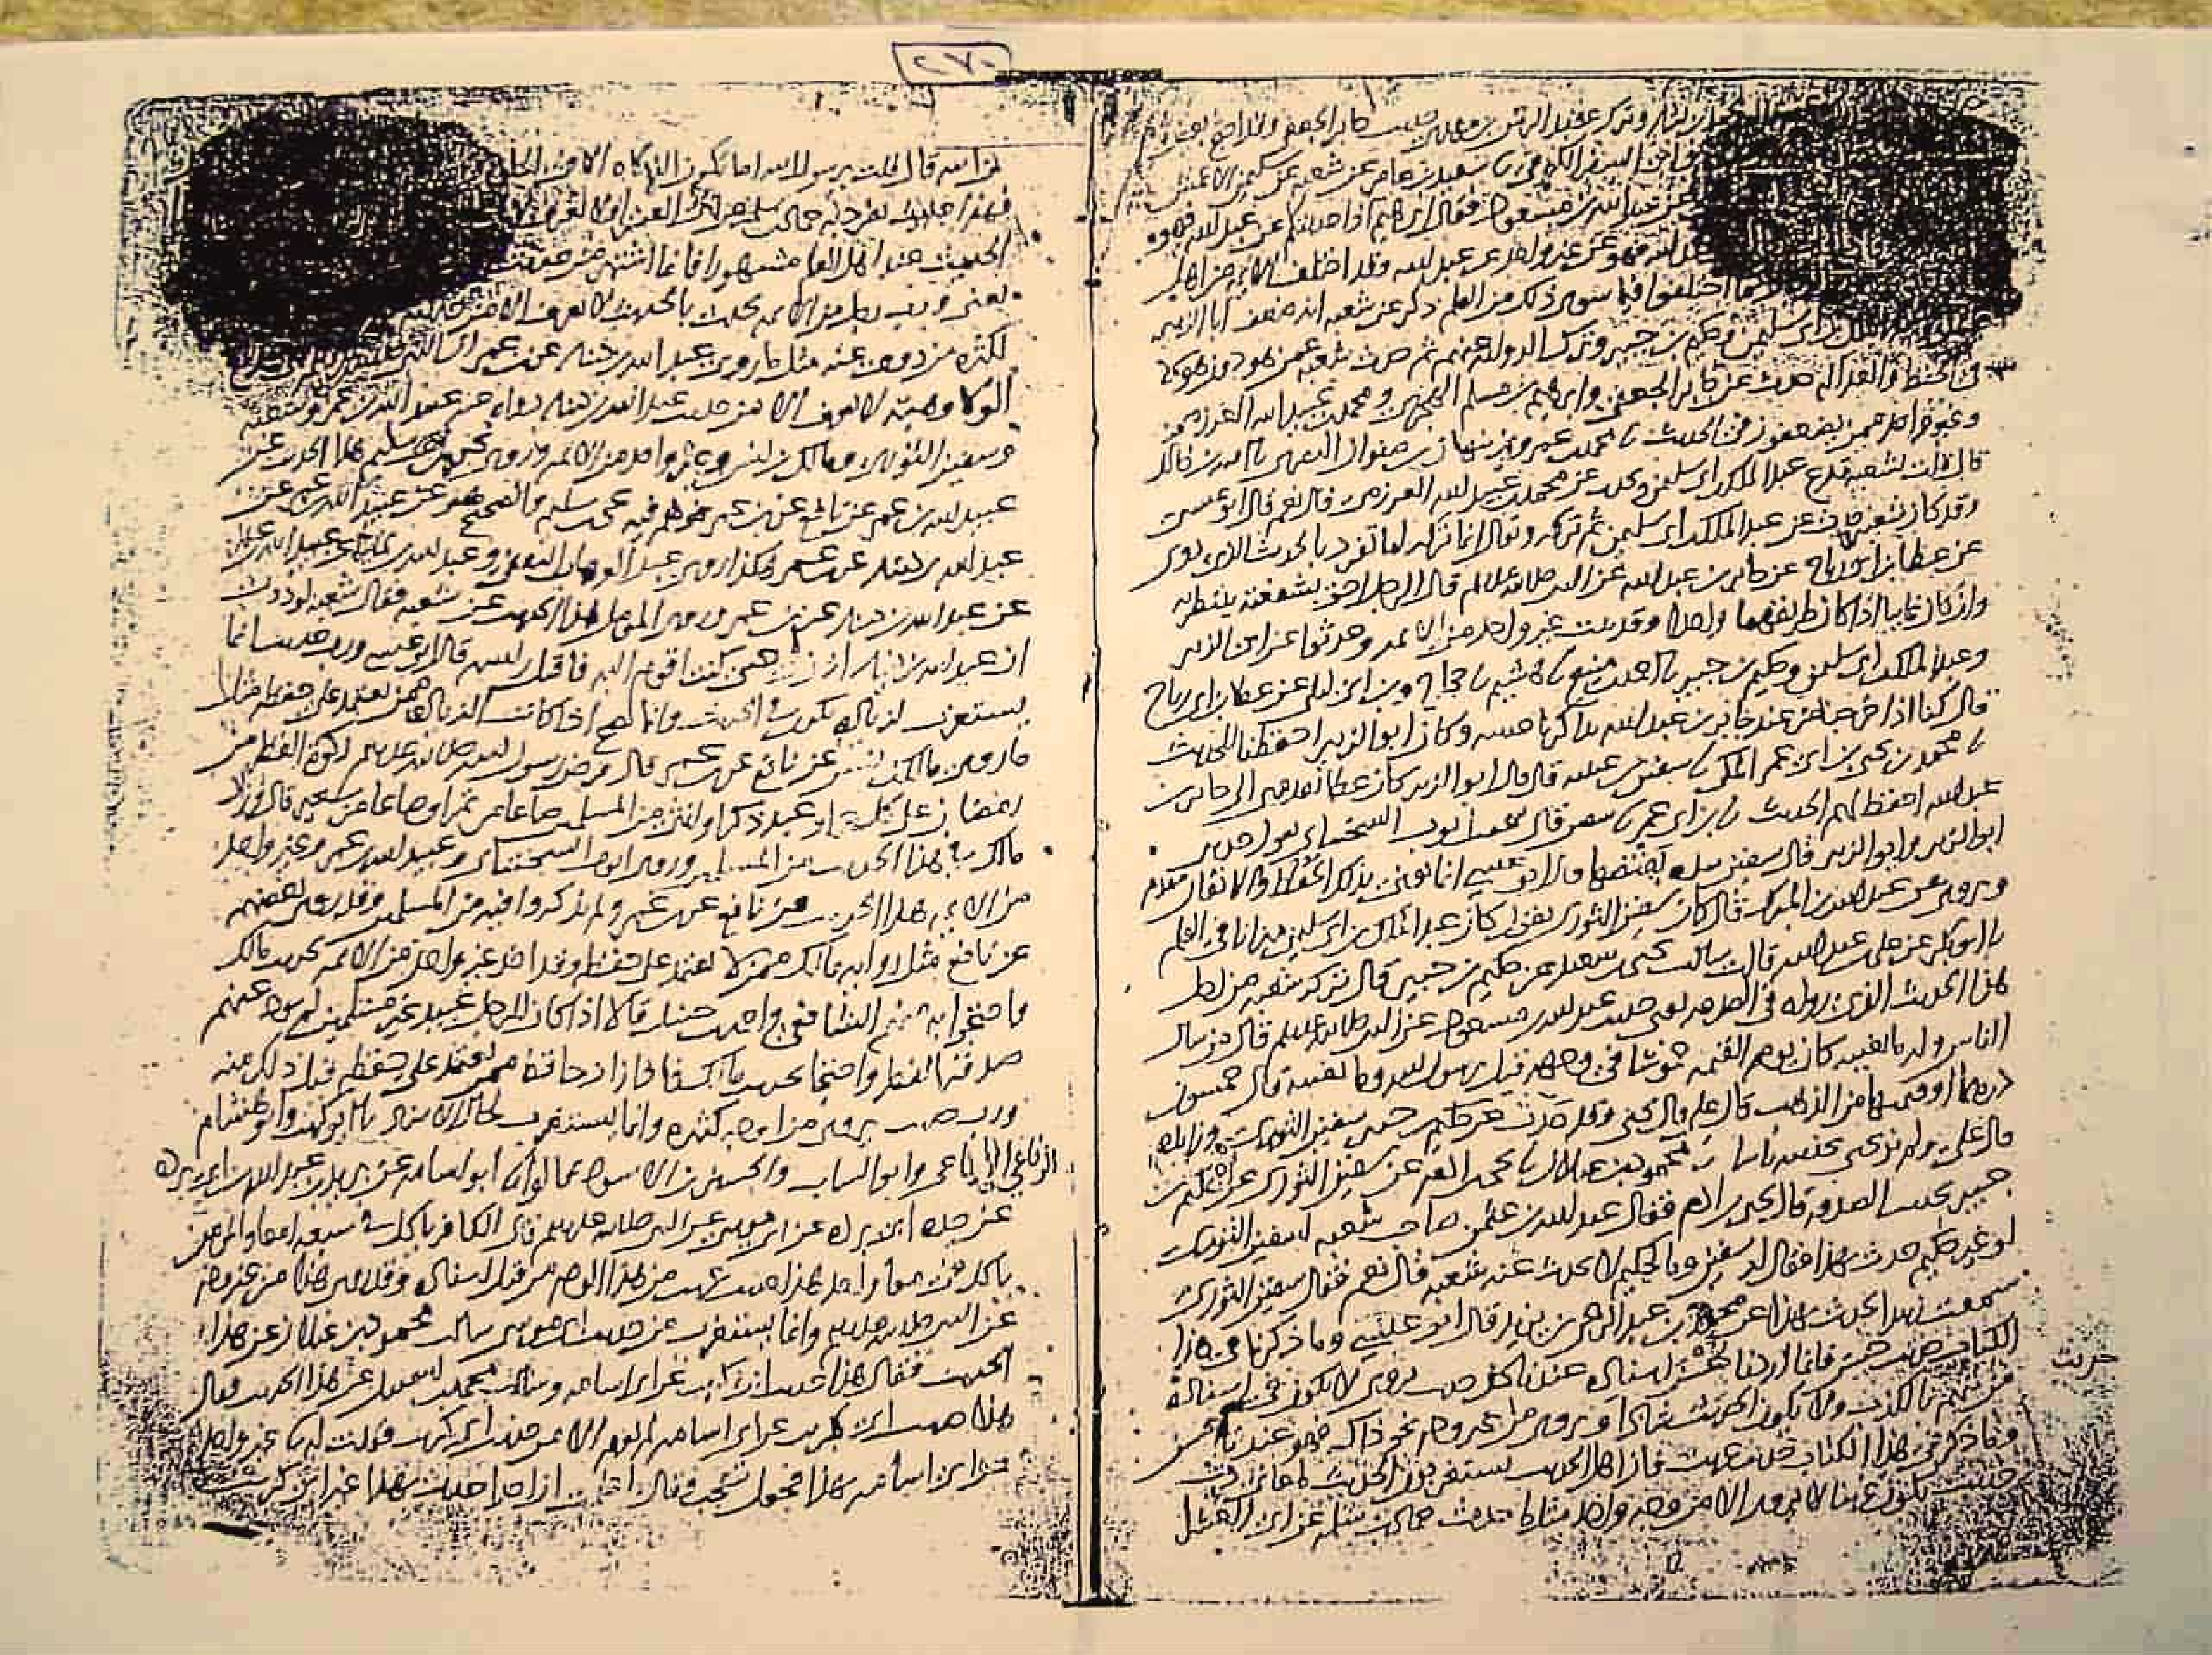 ٢٧٠
وترك عبد الرحمن بن مهدي حديث جابر الجعفي وقد احتج
سعيد بن عامر عن شعبة عن سليمن الاعمش
عبد الله بن مسعود فقال ابرهيم اذا حدثتكم عن عبد الله فهو
فهو عن غير واحد عن عبد الله وقد اختلف الايمة من اهل
اختلفوا فيما سوى ذلك من العلم ذكر عن شعبة انه ضعف ابا الزبير
بن ابي سليمن وحكيم بن جبير وترك الرواية عنهم ثم حدث شعبة عمن هو دون هولا
في الحفظ والعدالة حدث عن جابر الجعفي وابرهيم بن مسلم الهجري ومحمد بن عبيد الله العرزمي
وغير واحد ممن يضعفون في الحديث نا محمد بن عمرو بن نبهان بن صفوان البصري نا امية بن خالد
قال قلت لشعبة تدع عبد الملك بن ابي سليمن وتحدث عن محمد بن عبيد الله العرزمي قال نعم قال ابو عيسى
وقد كان شعبة حدث عن عبد الملك بن ابي سليمن ثم تركه ويقال انما تركه لما تفرد بالحديث الذي روى
عن عطا بن ابي رباح عن جابر بن عبد الله عن النبي صلى الله عليه وسلم قال الرجل احق بشفعته ينتظر به
وان كان غايبا اذا كان طريقهما واحدا وقد ثبت غير واحد من الايمة وحدثوا عن ابي الزبير
وعبد الملك بن ابي سليمن وحكيم بن جبير نا احمد بن منيع نا هشيم نا حجاج وبن ابي ليلى عن عطا بن ابي رباح
قال كنا اذا خرجنا من عند جابر بن عبد الله تذاكرنا حديثه وكان ابو الزبير احفظنا للحديث
نا محمد بن يحيى بن ابي عمر المكي نا سفين بن عيينة قال قال ابو الزبير كان عطا يقدمني الى جابر بن
عبد الله احفظ لهم الحديث نا بن ابي عمر نا سفين قال سمعت ايوب السختياني يقول حدثني
ابو الزبير وابو الزبير قال سفين بيده يقبضها قال ابو عيسى انما يعني بذلك الحفظ والاتقان
ويروى عن عبد الله بن المبارك قال كان سفين الثوري يقول كان عبد الملك بن ابي سليمن ميزانا في العلم
نا ابو بكر عن علي بن عبد الله قال سالت يحيى بن سعيد عن حكيم بن جبير قال تركه شعبة من اجل
هذا الحديث الذي رواه في الصدقة يعني حديث عبد الله بن مسعود عن النبي صلى الله عليه وسلم قال من سال
الناس وله ما يغنيه كان يوم القيمة خموشا في وجهه قيل يرسول الله وما يغنيه قال خمسون
درهما او قيمتها من الذهب قال علي قال يحيى وقد حدث عن حكيم بن جبير سفين الثوري وزايدة
قال علي ولم ير يحيى بحديثه باسا نا محمود بن غيلان نا يحيى بن ادم عن سفين الثوري عن حكيم بن
جبير بحديث الصدقة قال يحيى بن ادم فقال عبد الله بن عثمن صاحب شعبة لسفين الثوري
لو غير حكيم حدث بهذا فقال له سفين وما لحكيم لا يحدث عنه شعبة قال نعم فقال سفين الثوري
سمعت زبيدا يحدث بهذا عن محمد بن عبد الرحمن بن يزيد قال ابو عيسى وما ذكرنا في هذا
الكتاب حديث حسن فانما اردنا حسن اسناده عندنا كل حديث يروى لا يكون في اسناده
من يتهم بالكذب ولا يكون الحديث شاذا ويروى من غير وجه نحو ذاك فهو عندنا حسن
وما ذكرنا في هذا الكتاب حديث غريب فان اهل الحديث يستغربون الحديث لمعان رب
حديث يكون غريبا لا يروى الا من وجه واحد مثل ما حدث حماد بن سلمة عن ابي العشرا
حديث
عن ابيه قال قلت يرسول الله اما تكون الذكاة الا في الحلق
فهذا حديث تفرد به حماد بن سلمة عن ابي العشرا ولا يعرف
الحديث عند اهل العلم مشهورا فانما اشتهر من حديث
يعني ورب رجل من الايمة يحدث بالحديث لا يعرف الا من حديثه
لكثرة من روى عنه مثل ما روى عبد الله بن دينار عن بن عمر ان النبي صلى الله عليه نهى عن بيع
الولا وهبته لا يعرف الا من حديث عبد الله بن دينار رواه عنه عبيد الله بن عمر وشعبة
وسفين الثوري ومالك بن انس وغير واحد من الايمة وروى يحيى بن سليم هذا الحديث عن
عبيد الله بن عمر عن نافع عن بن عمر فوهم فيه يحيى بن سليم والصحيح هو عن عبيد الله بن عمر عن
عبد الله بن دينار عن بن عمر هكذا روى عبد الوهاب الثقفي وعبد الله بن نمير عن عبيد الله بن عمر
عن عبد الله بن دينار عن بن عمر وروى المومل هذا الحديث عن شعبة فقال شعبة لوددت
ان عبد الله بن دينار اذن لي حتى كنت اقوم اليه فاقبل راسه قال ابو عيسى ورب حديث انما
يستغرب لزيادة تكون في الحديث وانما يصح اذا كانت الزيادة ممن يعتمد على حفظه مثل
ما روى مالك بن انس عن نافع عن بن عمر قال فرض رسول الله صلى الله عليه وسلم زكوة الفطر من
رمضان على كل حر او عبد ذكر او انثى من المسلمين صاعا من تمر او صاعا من شعير قال وزاد
مالك في هذا الحديث من المسلمين وروى ايوب السختياني وعبيد الله بن عمر وغير واحد
من الايمة هذا الحديث عن نافع عن بن عمر ولم يذكروا فيه من المسلمين وقد روى بعضهم
عن نافع مثل رواية مالك ممن لا يعتمد على حفظه وقد اخذ غير واحد من الايمة بحديث مالك
واحتجوا به منهم الشافعي واحمد بن حنبل قالا اذا كان للرجل عبيد غير مسلمين لم يود عنهم
صدقة الفطر واحتجا بحديث مالك فاذا زاد حافظ ممن يعتمد على حفظه قبل ذلك منه
ورب حديث يروى من اوجه كثيرة وانما يستغرب لحال الاسناد نا ابو كريب وابو هشام
الرفاعي وابو السايب والحسين بن الاسود قالوا نا ابو اسامة عن بريد بن عبد الله بن ابي بردة
عن جده ابي بردة عن ابي موسى عن النبي صلى الله عليه وسلم قال الكافر ياكل في سبعة امعا والمومن
ياكل في معا واحد هذا حديث غريب من هذا الوجه من قبل اسناده وقد روي هذا من غير وجه
عن النبي صلى الله عليه وسلم وانما يستغرب من حديث ابي موسى سالت محمود بن غيلان عن هذا
الحديث فقال هذا حديث ابي كريب عن ابي اسامة وسالت محمد بن اسمعيل عن هذا الحديث فقال
هذا حديث ابي كريب عن ابي اسامة لم نعرفه الا من حديث ابي كريب فقلت له نا غير واحد
عن ابي اسامة بهذا فجعل يتعجب وقال ما علمت ان احدا حدث بهذا غير ابي كريب